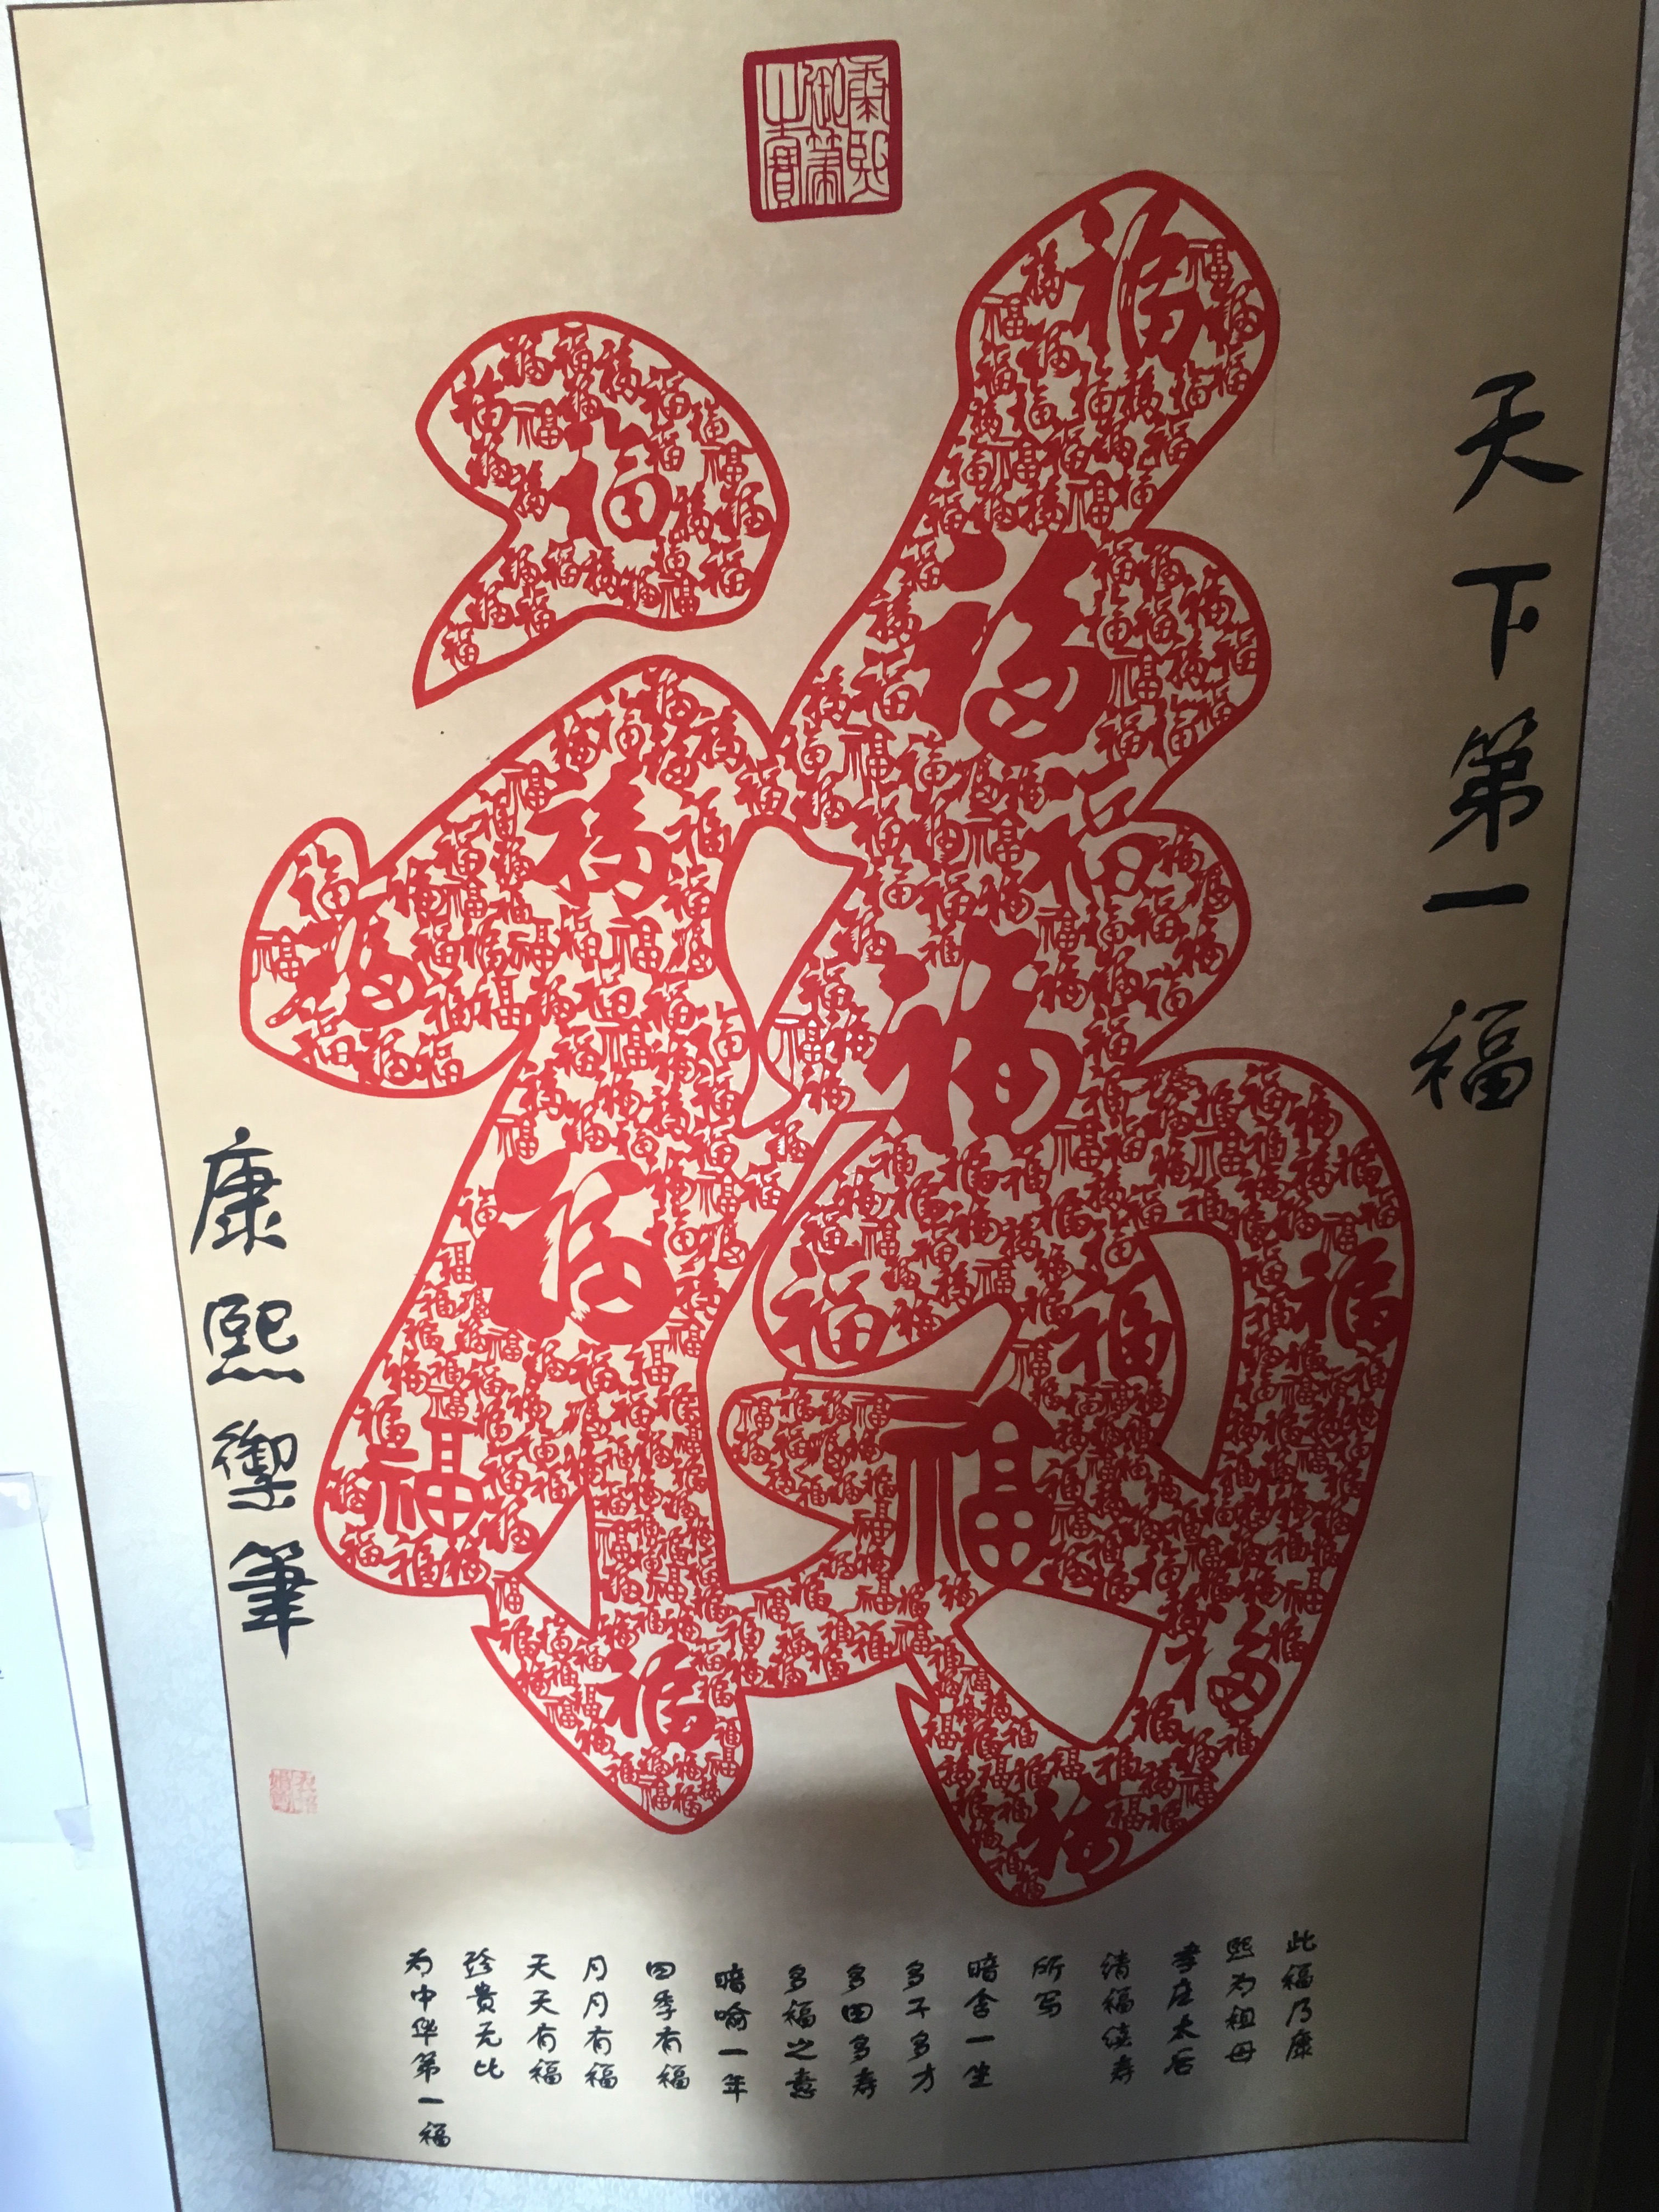 康熙
御筆
之寶
天下第一福
福
康熙禦筆
此福乃康
熙为祖母
孝庄太后
请福续寿
所写
暗含一生
多子多才
多田多寿
多福之意
暗喻一年
四季有福
月月有福
天天有福
珍贵无比
为中华第一福